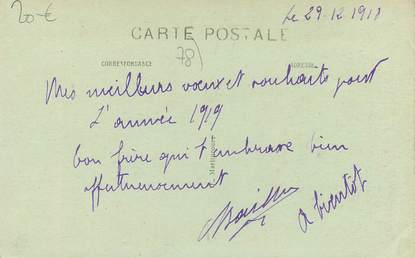 20-€
Le 29-12-1918
CARTE POSTALE
78)
CORRESPONDANCE
ADRESSE
Mes meilleurs vœux et souhaits pour
L'année 1919
bon frère qui t'embrasse bien
affectueusement
A bientôt